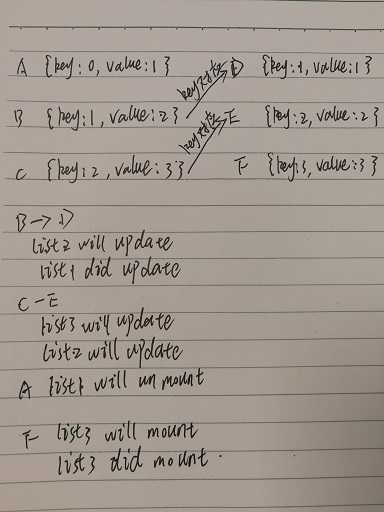 A {key: 0, value: 1} D {key: 1, value: 1}
B {key: 1, value: 2} key对应 E {key: 2, value: 2}
C {key: 2, value: 3} key对应 F {key: 3, value: 3}
B → D
list2 will update
list1 did update
C - E
list3 will update
list2 will update
A list1 will unmount
F list3 will mount
list3 did mount.